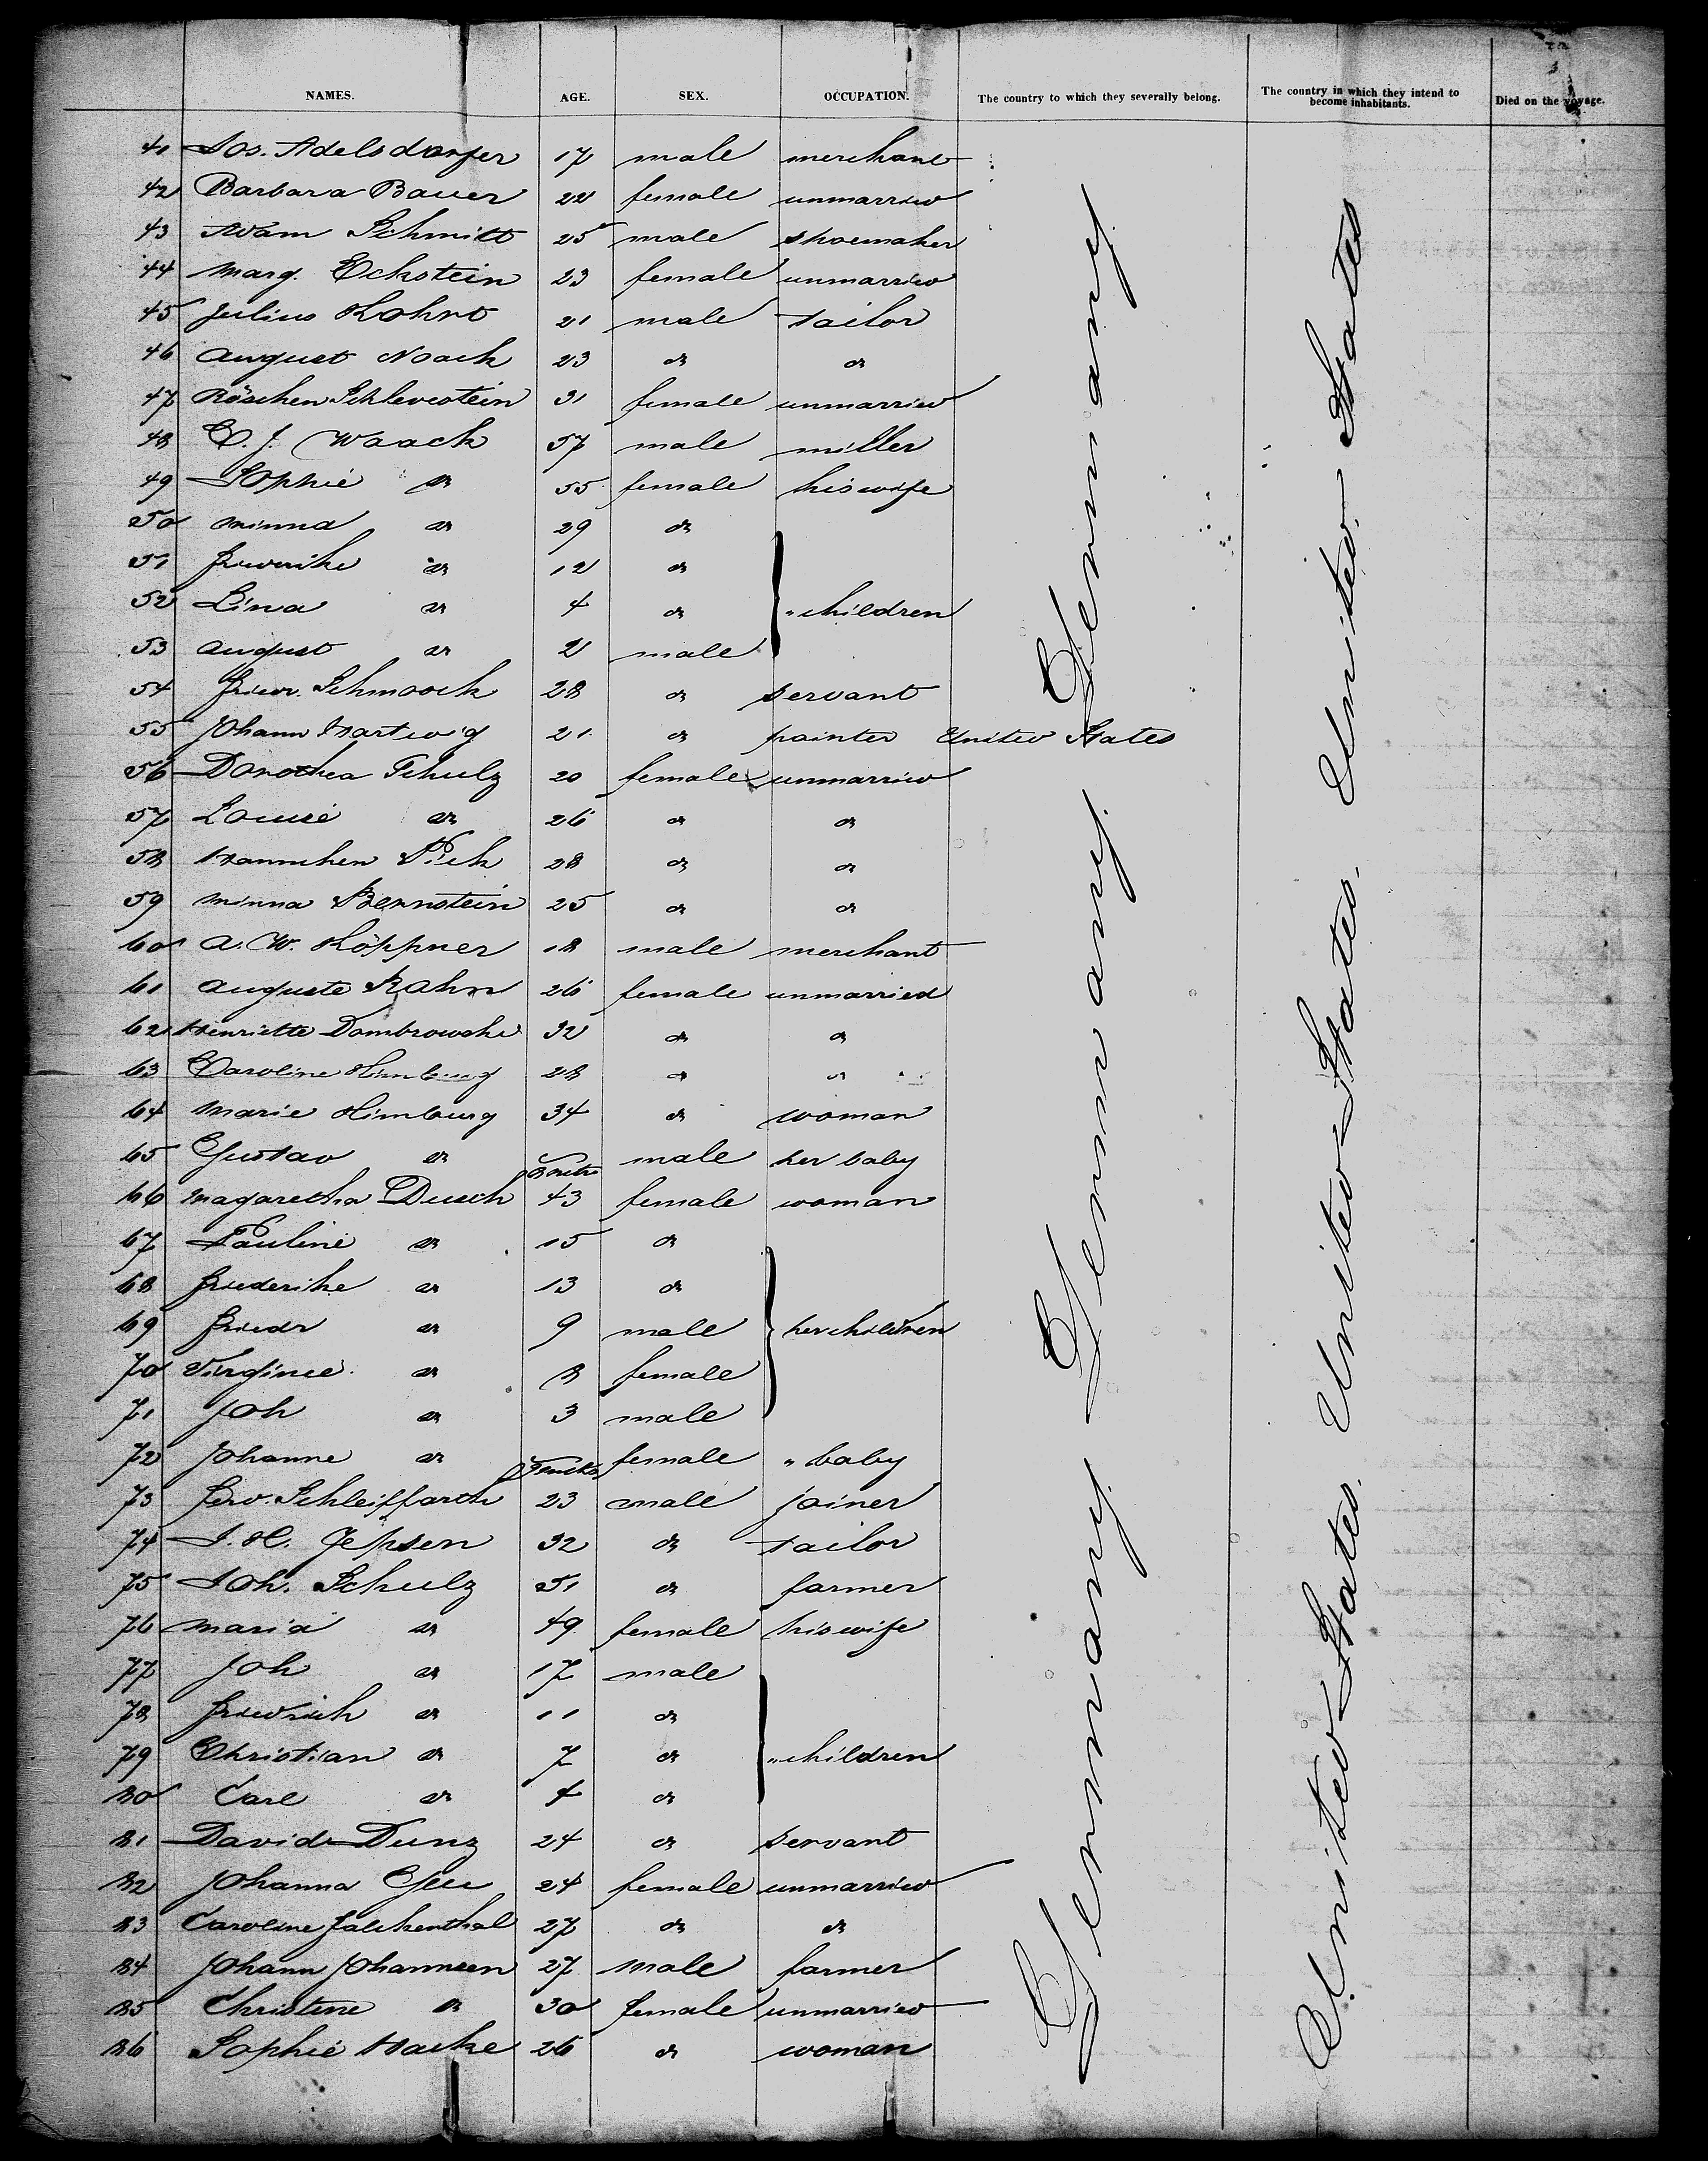 NAMES. AGE. SEX. OCCUPATION. The country to which they severally belong. The country in which they intend to become inhabitants. Died on the voyage.
41 Jos. Adelsdorfer 17 male merchant
42 Barbara Bauer 22 female unmarried
43 Adam Schmitt 25 male shoemaker
44 Marg. Eckstein 23 female unmarried
45 Julius Kohrt 21 male tailor
46 August Noack 23 do do
47 Röschen Schleverstein 31 female unmarried
48 C. J. Waack 57 male miller
49 Sophie do 55 female his wife
50 Minna do 29 do
51 Friederike do 12 do
52 Lina do 4 do " children
53 August do 2 male
54 Friedr. Schmoock 28 do servant
55 Johann Hartwig 21 do painter United States
56 Dorothea Schulz 20 female unmarried
57 Louise do 26 do do
58 Hannchen Pick 28 do do
59 Minna Bernstein 25 do do
60 A. W. Köppner 18 male merchant
61 Auguste Rahn 26 female unmarried
62 Henriette Dombrowske 32 do do
63 Caroline Himburg 28 do do
64 Marie Himburg 34 do woman
65 Gustav do 8 mths male her baby
66 Magaretha Dusch 43 female woman
67 Pauline do 15 do
68 Friederike do 13 do
69 Friedr do 9 male her children
70 Virginie do 8 female
71 Joh do 3 male
72 Johanne do mths female " baby
73 Ferd. Schleiffarth 23 male joiner
74 J. H. Jepsen 32 do tailor
75 Joh. Schulz 51 do farmer
76 Maria do 49 female his wife
77 Joh do 17 male
78 Friedrich do 11 do
79 Christian do 7 do " children
80 Carl do 4 do
81 David Dunz 24 do servant
82 Johanna Geu 24 female unmarried
83 Caroline Falckenthal 27 do do
84 Johann Johannsen 27 male farmer
85 Christine do 30 female unmarried
86 Sophie Hacke 26 do woman
Germany Germany Germany Germany
United States. United States. United States. United States